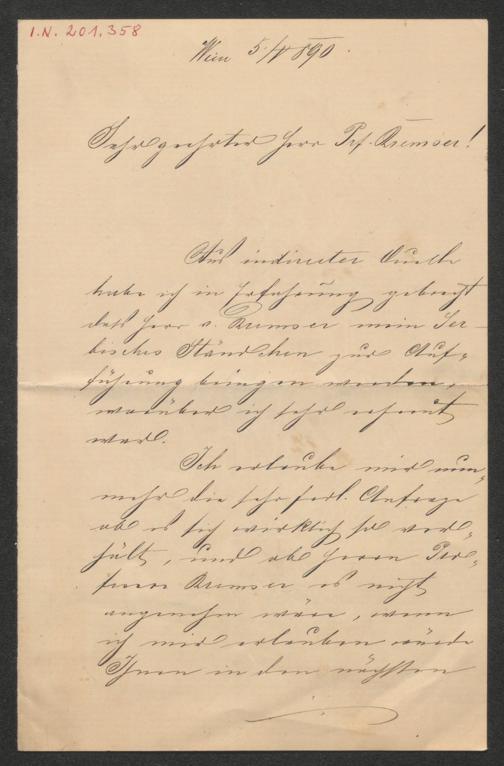 I.N. 201.358
Wien 5/V 890.
Sehr geehrter Herr Prf. Kremser!
Aus indirecter Quelle
habe ich in Erfahrung gebracht
daß Herr v. Kremser mein Ser-
bisches Ständchen zur Auf-
führung bringen werden,
worüber ich sehr erfreut
ward.
Ich erlaube mir nun-
mehr die sehr höfl. Anfrage
ob es sich wirklich so ver-
hält, und ob Herrn Pro-
fessor Kremser es nicht
angenehm wäre, wenn
ich mir erlauben würde
Ihnen in den nächsten